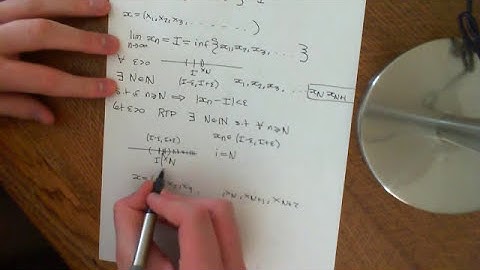 x=(x₁,x₂,x₃,.......)
lim xₙ = I = inf{x₁,x₂,x₃,....}
n→∞
∀ ε>0
I xN
∃ N∈ℕ (I-ε,I+ε) x₁,x₂,x₃,.... xN xN+1
s.t ∀ n≥N ⟹ |xₙ-I|<ε
let ε>0 RTP ∃ N∈ℕ s.t ∀ n≥N
(I-ε,I+ε) xₙ∈(I-ε,I+ε)
I xN i=N
x= x₃, xN, xN+1, xN+2